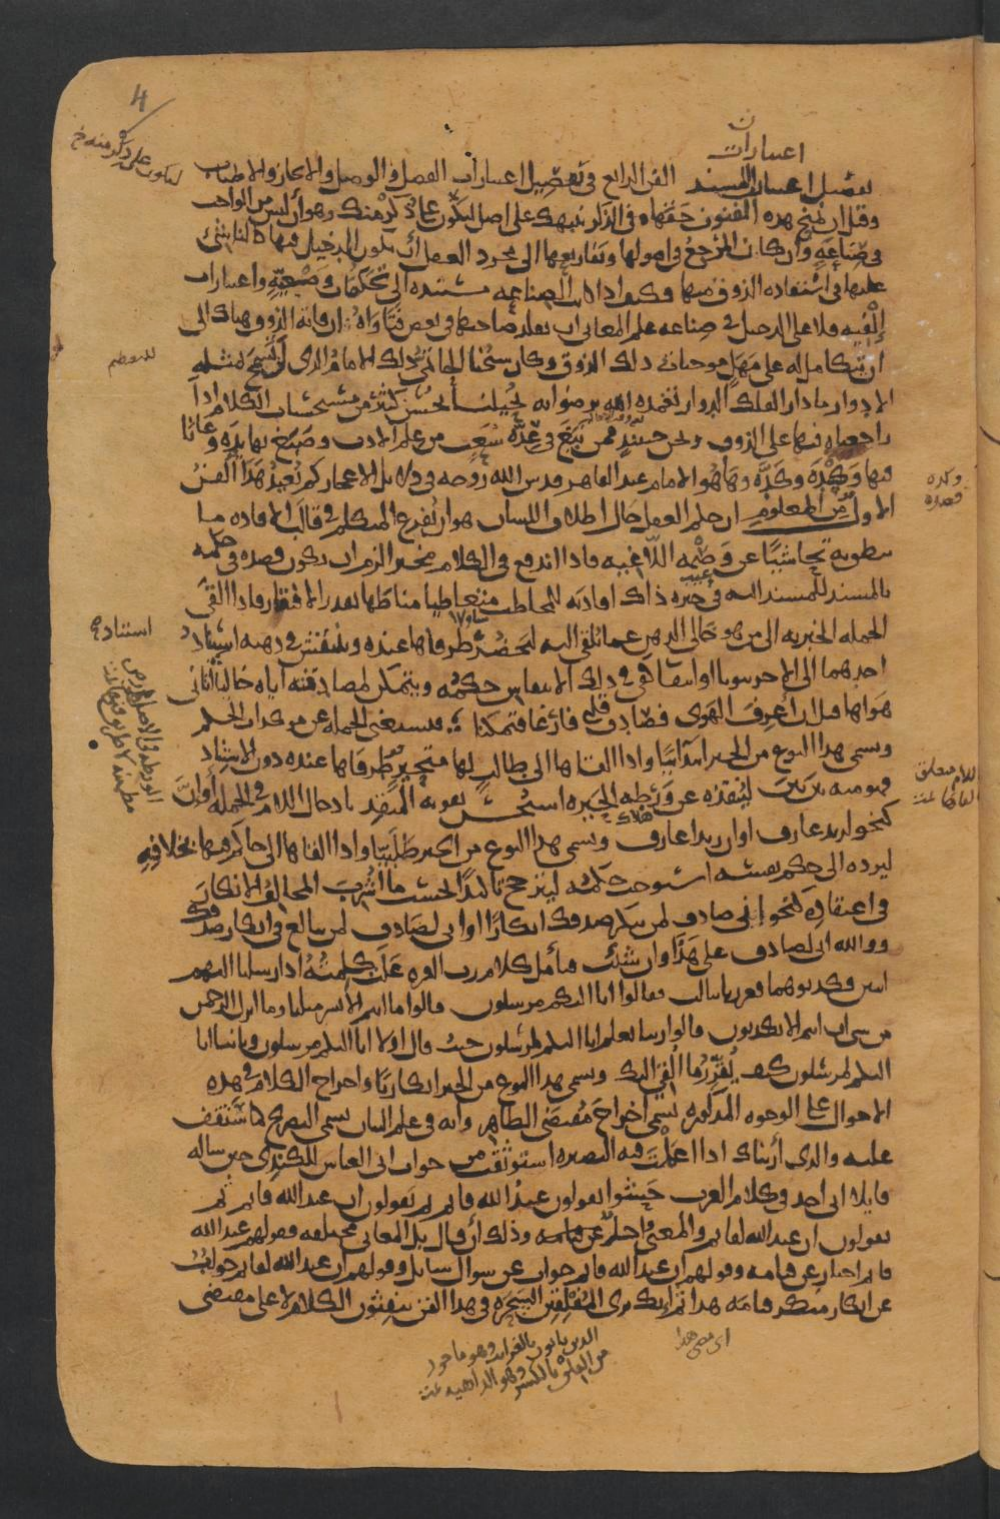 4
ليكون على ذكر منه خ
اعتبارات
تفصيل اعتبارات المسند الفن الرابع في تفصيل اعتبارات الفصل والوصل والايجاز والاطناب
وقبل ان نمنح هذه الفنون حقها في الذكر ننبهك على اصل لتكون على ذكر منه وهو أن ليس من الواجب
في صناعة وان كان المرجع في اصولها وتفاريعها الى مجرد العقل أن يكون الدخيل فيها كالناشئ
عليها في استفادة الذوق منها فكيف اذا كانت الصناعة مستندة الى تحكمات وضعية واعتبارات
إلفية فلا على الدخيل في صناعة علم المعاني ان يقلد صاحبها في بعض فتاواه ان فاته الذوق هناك الى
أن يتكامل له على مهل موجبات ذلك الذوق وكان شيخنا الحاتمي ذلك الامام الذي لن تسمح بمثله
الادوار ما دار الفلك الدوار تغمده الله برضوانه يحيلنا بحسن كثير من مستحسنات الكلام اذا
راجعناه فيها على الذوق ونحن حينئذ ممن نبغ في عدة شعب من علم الادب وصبغ بها يده وعانى
فيها وكده وكده وها هو الامام عبد القاهر قدس الله روحه في دلائل الاعجاز كم يعيد هذا الفن
الاول من المعلوم ان حكم العقل حال اطلاق اللسان هو ان يفرغ المتكلم في قالب الافادة ما
ينطق به تحاشيا عن وصمة اللاغية فاذا اندفع في الكلام مخبرا لزم ان يكون قصده في حكمه
بالمسند للمسند اليه في خبره ذاك افادته للمخاطب متعاطيا مناطها بقدر الافتقار فاذا القى
الجملة الخبرية الى من هو خالي الذهن عما يلقى اليه ليحضر طرفاها عنده وينتقش في ذهنه استناد
احدهما الى الاخر ثبوتا او انتفاء كفى في ذلك الانتقاش حكمه ويتمكن لمصادفته اياه خاليا أتاني
هواها قبل ان اعرف الهوى فصادف قلبي فارغا فتمكنا فتستغني الجملة عن مؤكدات الحكم
وسمي هذا النوع من الخبر ابتدائيا واذا القاها الى طالب لها متحير طرفاها عنده دون الاستناد
فهو منه بين بين لينقذه عن ورطة الحيرة استحسن تقوية المنقذ بادخال اللام في الجملة أو إن
كنحو لزيد عارف او ان زيدا عارف وسمي هذا النوع من الخبر طلبيا واذا القاها الى حاكم فيها بخلافه
ليرده الى حكم نفسه استوجب حكمه ليترجح تأكيدا بحسب ما اشرب المخالف الانكار
في اعتقاده كنحو إني صادق لمن ينكر صدقك انكارا او اني لصادق لمن يبالغ في انكار صدقك
ووالله اني لصادق على هذا وان شئت فتأمل كلام رب العزة علت كلمته اذ ارسلنا اليهم
اثنين فكذبوهما فعززنا بثالث فقالوا انا اليكم مرسلون قالوا ما انتم الا بشر مثلنا وما انزل الرحمن
من شئ ان انتم الا تكذبون قالوا ربنا يعلم انا اليكم لمرسلون حيث قال اولا انا اليكم مرسلون وثانيا انا
اليكم لمرسلون كيف يقرر ما ألقي اليك وسمي هذا النوع من الخبر انكاريا واخراج الكلام في هذه
الاحوال على الوجوه المذكورة يسمى اخراج مقتضى الظاهر وانه في علم البيان يسمى بالتصريح كما ستقف
عليه والذي أريناك اذا اعملت فيه البصيرة استوثقت من جواب ابي العباس للكندي حين سأله
قائلا اني اجد في كلام العرب حشوا يقولون عبد الله قائم ثم يقولون ان عبد الله قائم ثم
يقولون ان عبد الله لقائم والمعنى واحد وذلك أن قال بل المعاني مختلفة فقولهم عبد الله
قائم اخبار عن قيامه وقولهم ان عبد الله قائم جواب عن سؤال سائل وقولهم ان عبد الله لقائم جواب
عن انكار منكر قيامه هذا ثم إنك ترى المفلقين السحرة في هذا الفن ينفثون الكلام لا على مقتضى
وكده
استناد
اللام متعلق
اي مضى هذا
الذين يأتون بالغرائب وهو مأخوذ
من الفلق بالكسر وهو الداهية